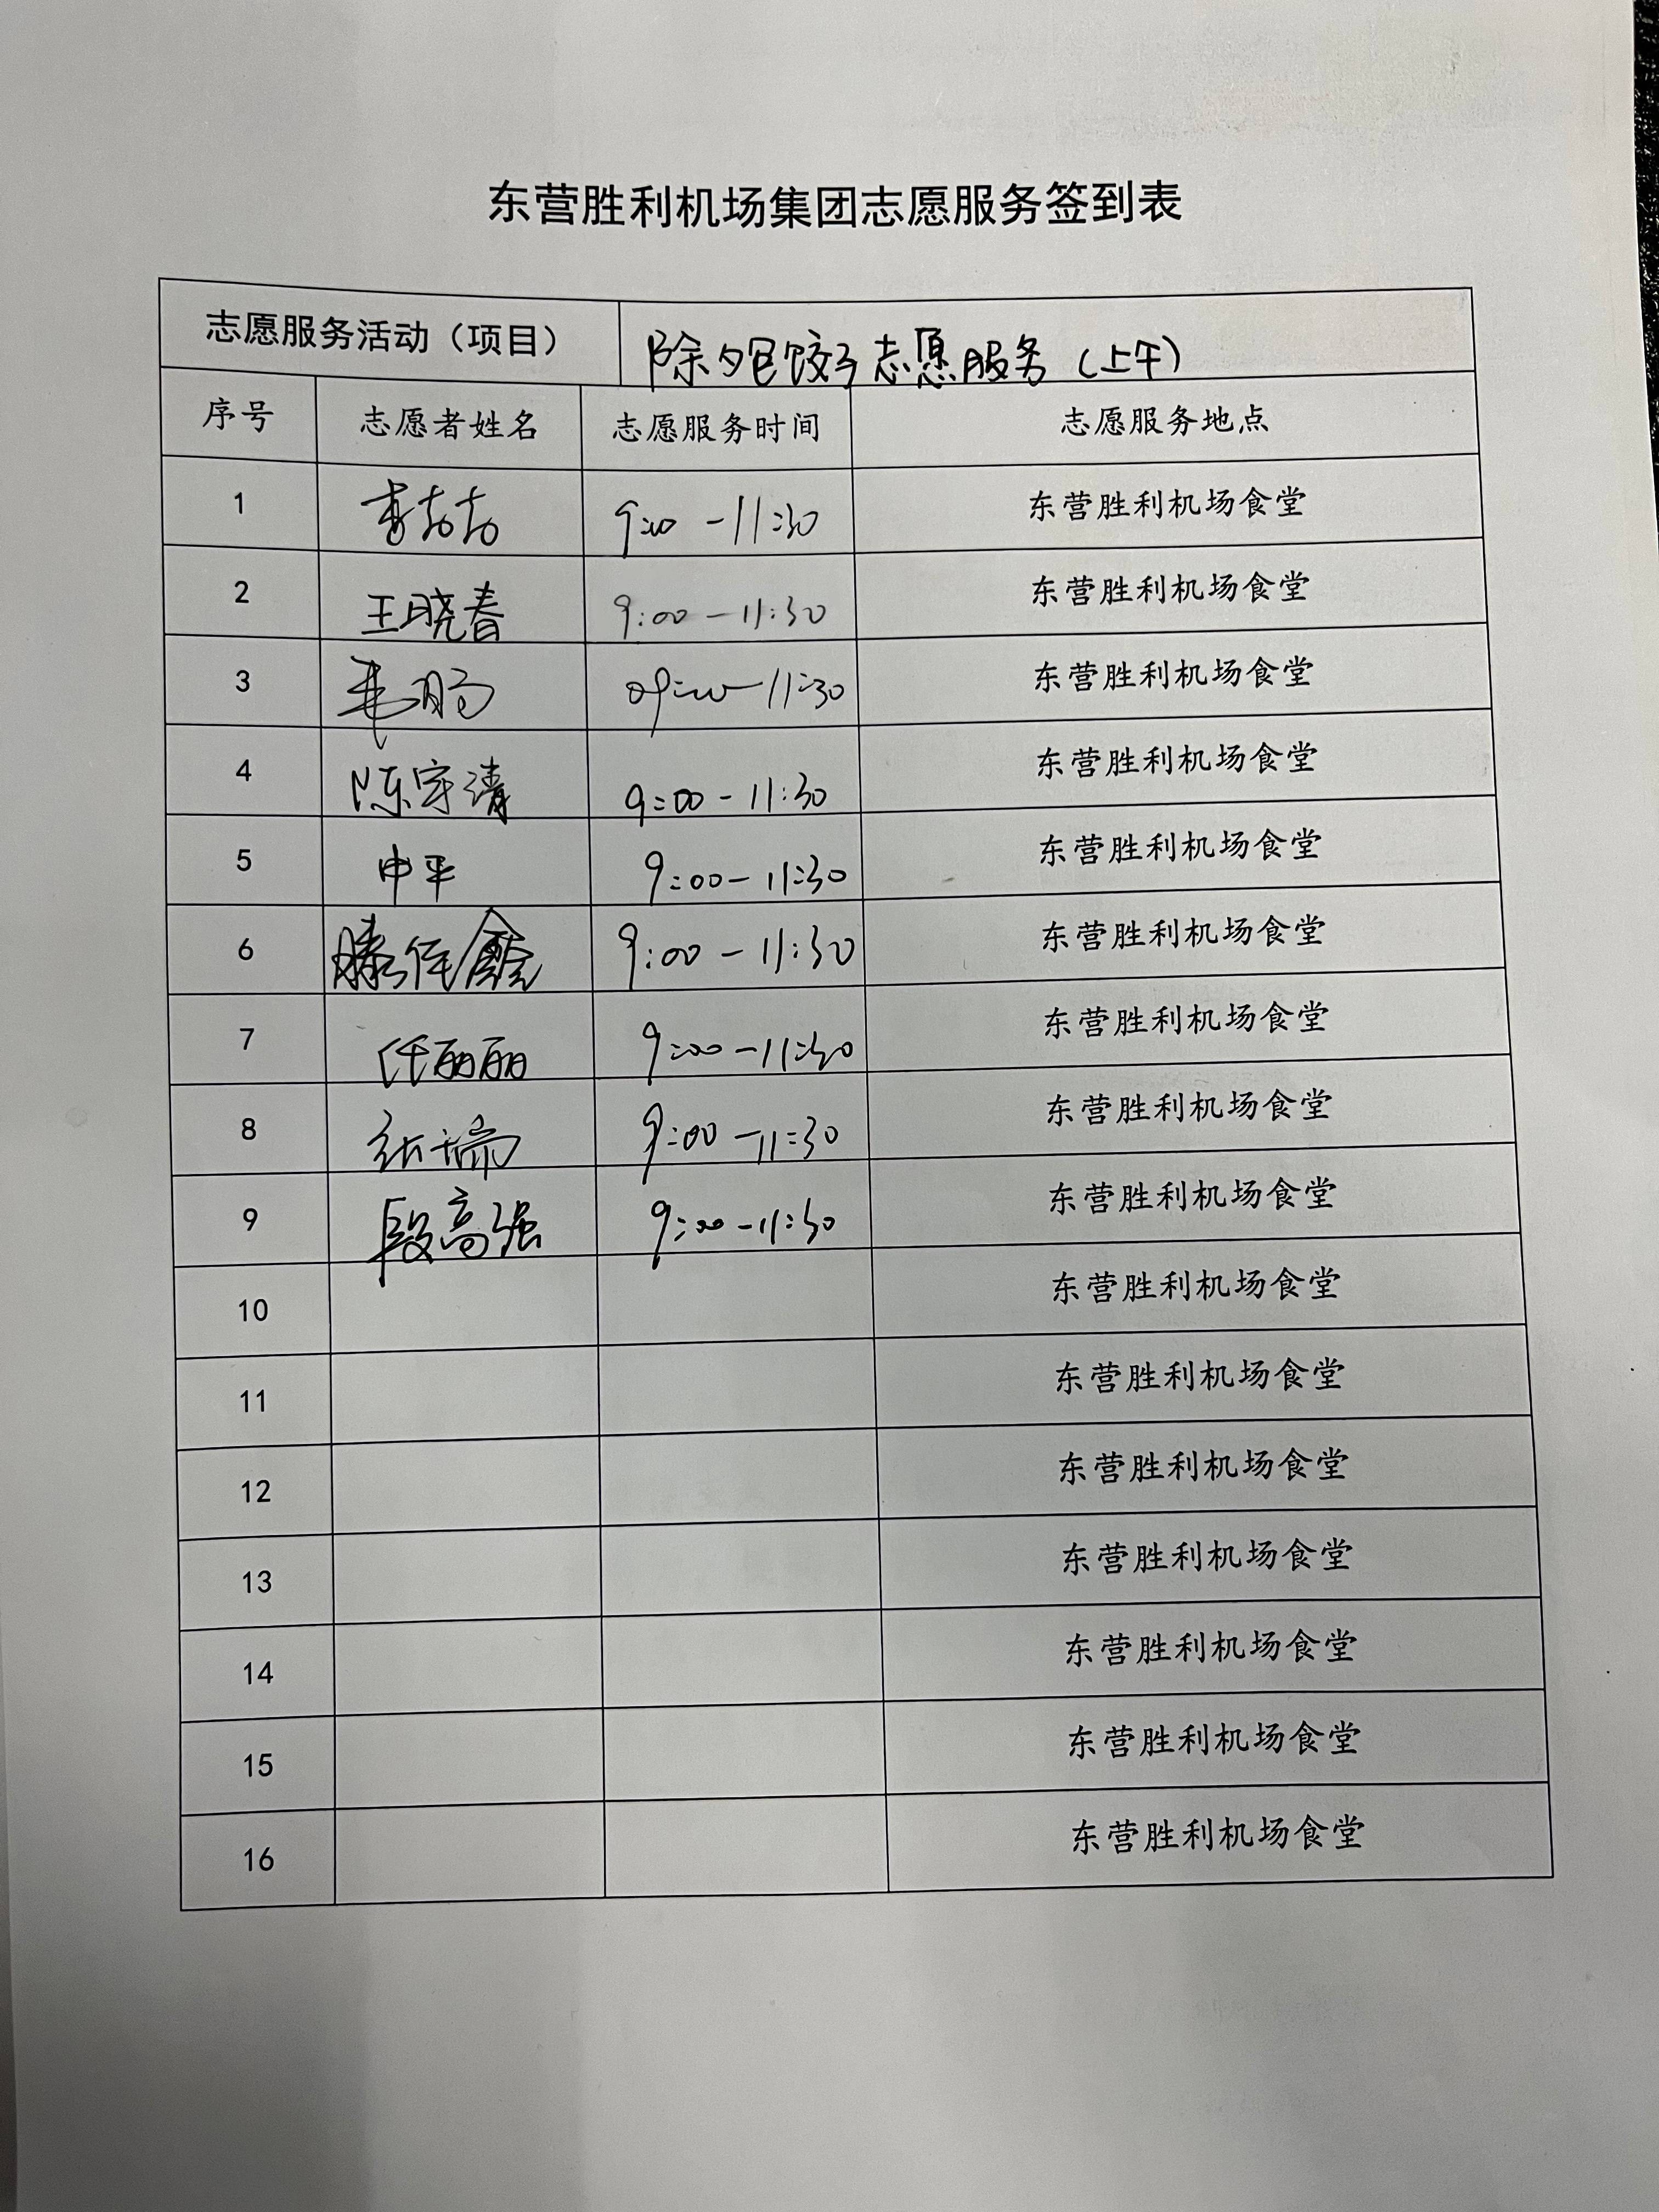 东营胜利机场集团志愿服务签到表
志愿服务活动（项目） 除夕包饺子志愿服务（上午）
序号 志愿者姓名 志愿服务时间 志愿服务地点
1 9:00-11:30 东营胜利机场食堂
2 王晓春 9:00-11:30 东营胜利机场食堂
3 09:00-11:30 东营胜利机场食堂
4 陈宇清 9:00-11:30 东营胜利机场食堂
5 申平 9:00-11:30 东营胜利机场食堂
6 9:00-11:30 东营胜利机场食堂
7 任丽丽 9:00-11:30 东营胜利机场食堂
8 张瑞 9:00-11:30 东营胜利机场食堂
9 段高强 9:00-11:30 东营胜利机场食堂
10 东营胜利机场食堂
11 东营胜利机场食堂
12 东营胜利机场食堂
13 东营胜利机场食堂
14 东营胜利机场食堂
15 东营胜利机场食堂
16 东营胜利机场食堂